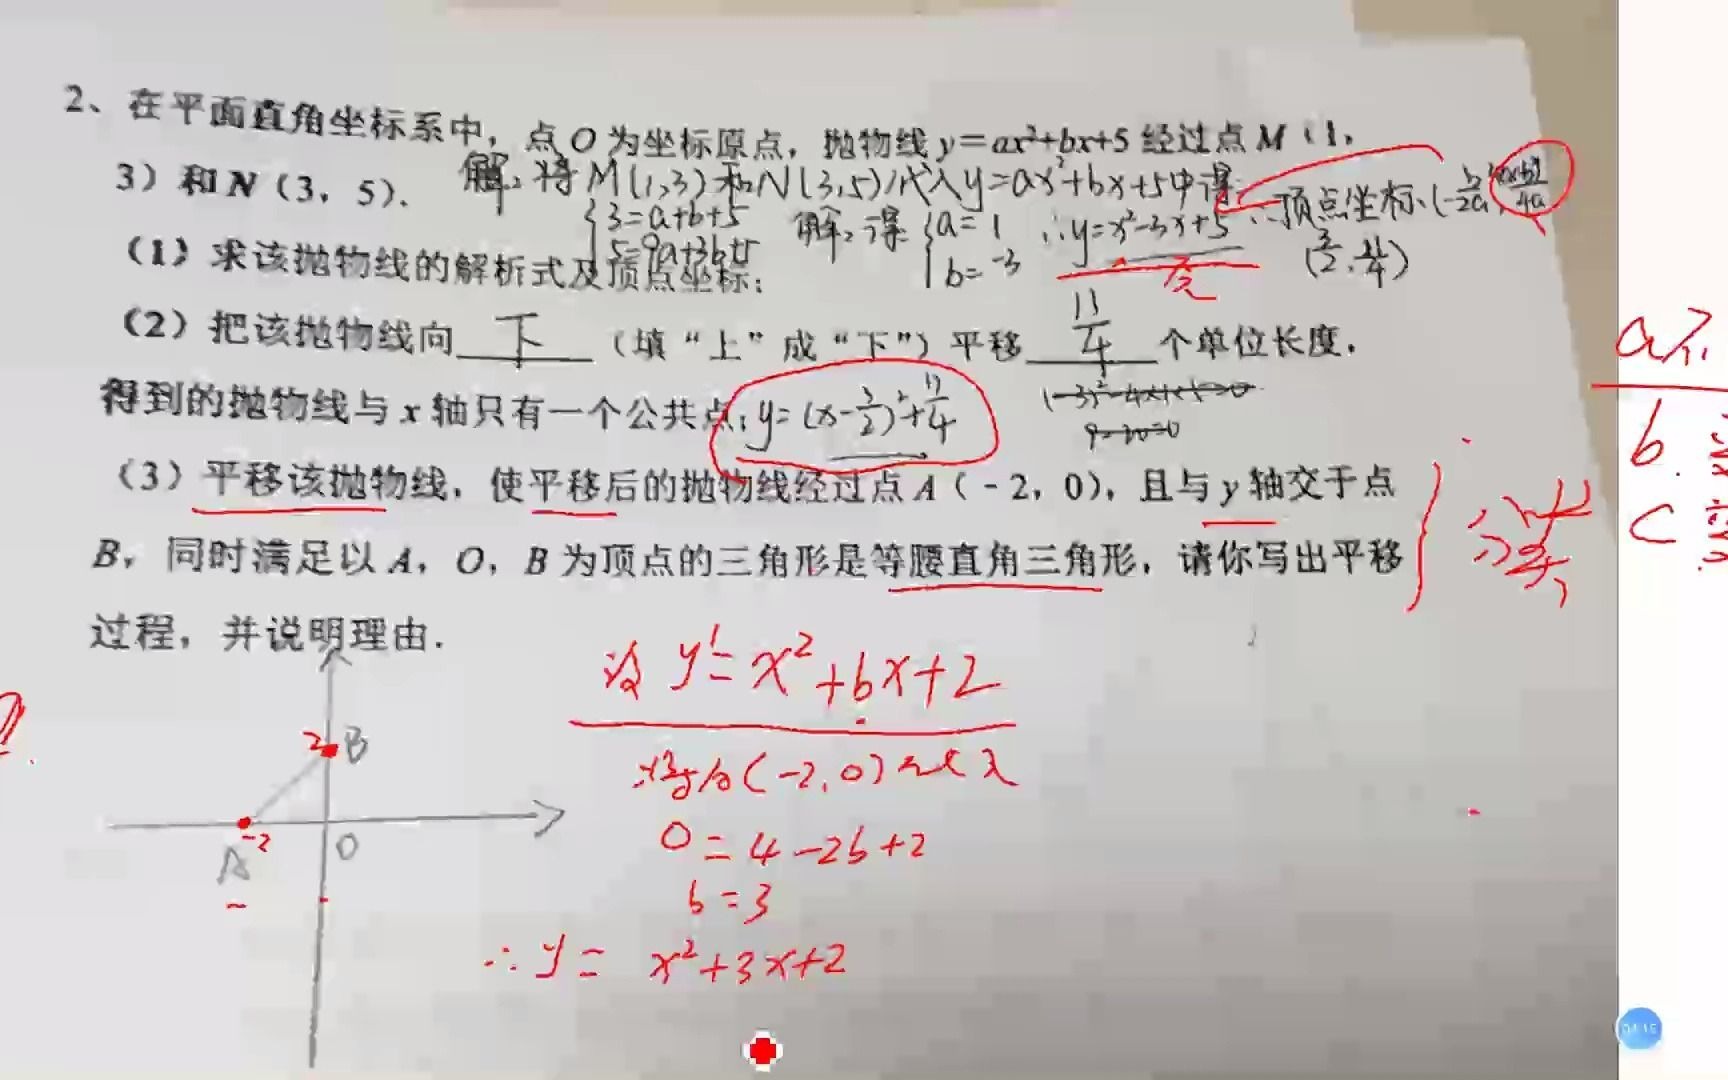 2、在平面直角坐标系中，点O为坐标原点，抛物线y=ax²+bx+5经过点M（1，
3）和N（3，5）.
解:将M(1,3)和N(3,5)代入y=ax²+bx+5中得:
{3=a+b+5
5=9a+3b+5
解,得{a=1
b=-3
∴y=x²-3x+5
∴顶点坐标(-b/2a,
4a
(3/2, 11/4)
（1）求该抛物线的解析式及顶点坐标；
（2）把该抛物线向 下 （填“上”成“下”）平移 11/4 个单位长度.
得到的抛物线与x轴只有一个公共点；
y=(x-3/2)²+11/4
9-20=0
（3）平移该抛物线，使平移后的抛物线经过点A（-2，0），且与y轴交于点
B，同时满足以A，O，B为顶点的三角形是等腰直角三角形，请你写出平移
过程，并说明理由.
a不
b
c
设y'=x²+bx+2
将A(-2,0)代入
0=4-2b+2
b=3
∴y= x²+3x+2
2 B
-2
A
O
04:15